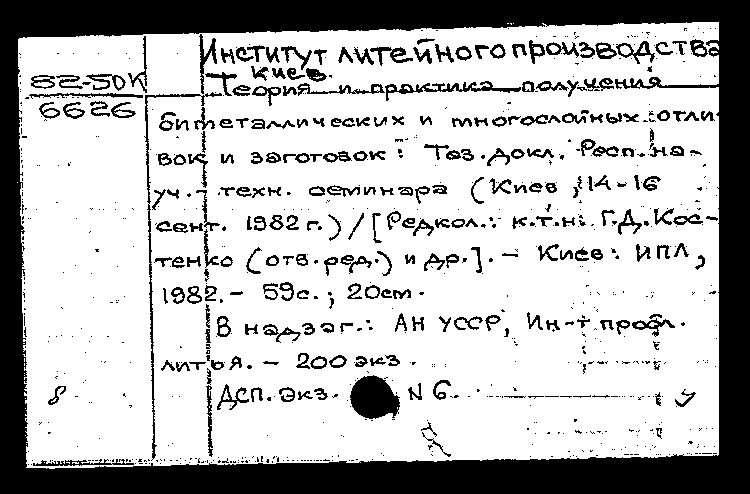 Институт литейного производства
Киев.
82-50К Теория и практика получения
6626 биметаллических и многослойных отли-
вок и заготовок : Тез. докл. Респ. на-
уч.-техн. семинара (Киев, 14-16
сент. 1982 г.) / [Редкол.: к.т.н. Г.Д. Кос-
тенко (отв. ред.) и др.]. - Киев : ИПЛ,
1982. - 59 с. ; 20 см.
В надзаг.: АН УССР, Ин-т пробл.
литья. - 200 экз.
8 ДСП. Экз. N 6.